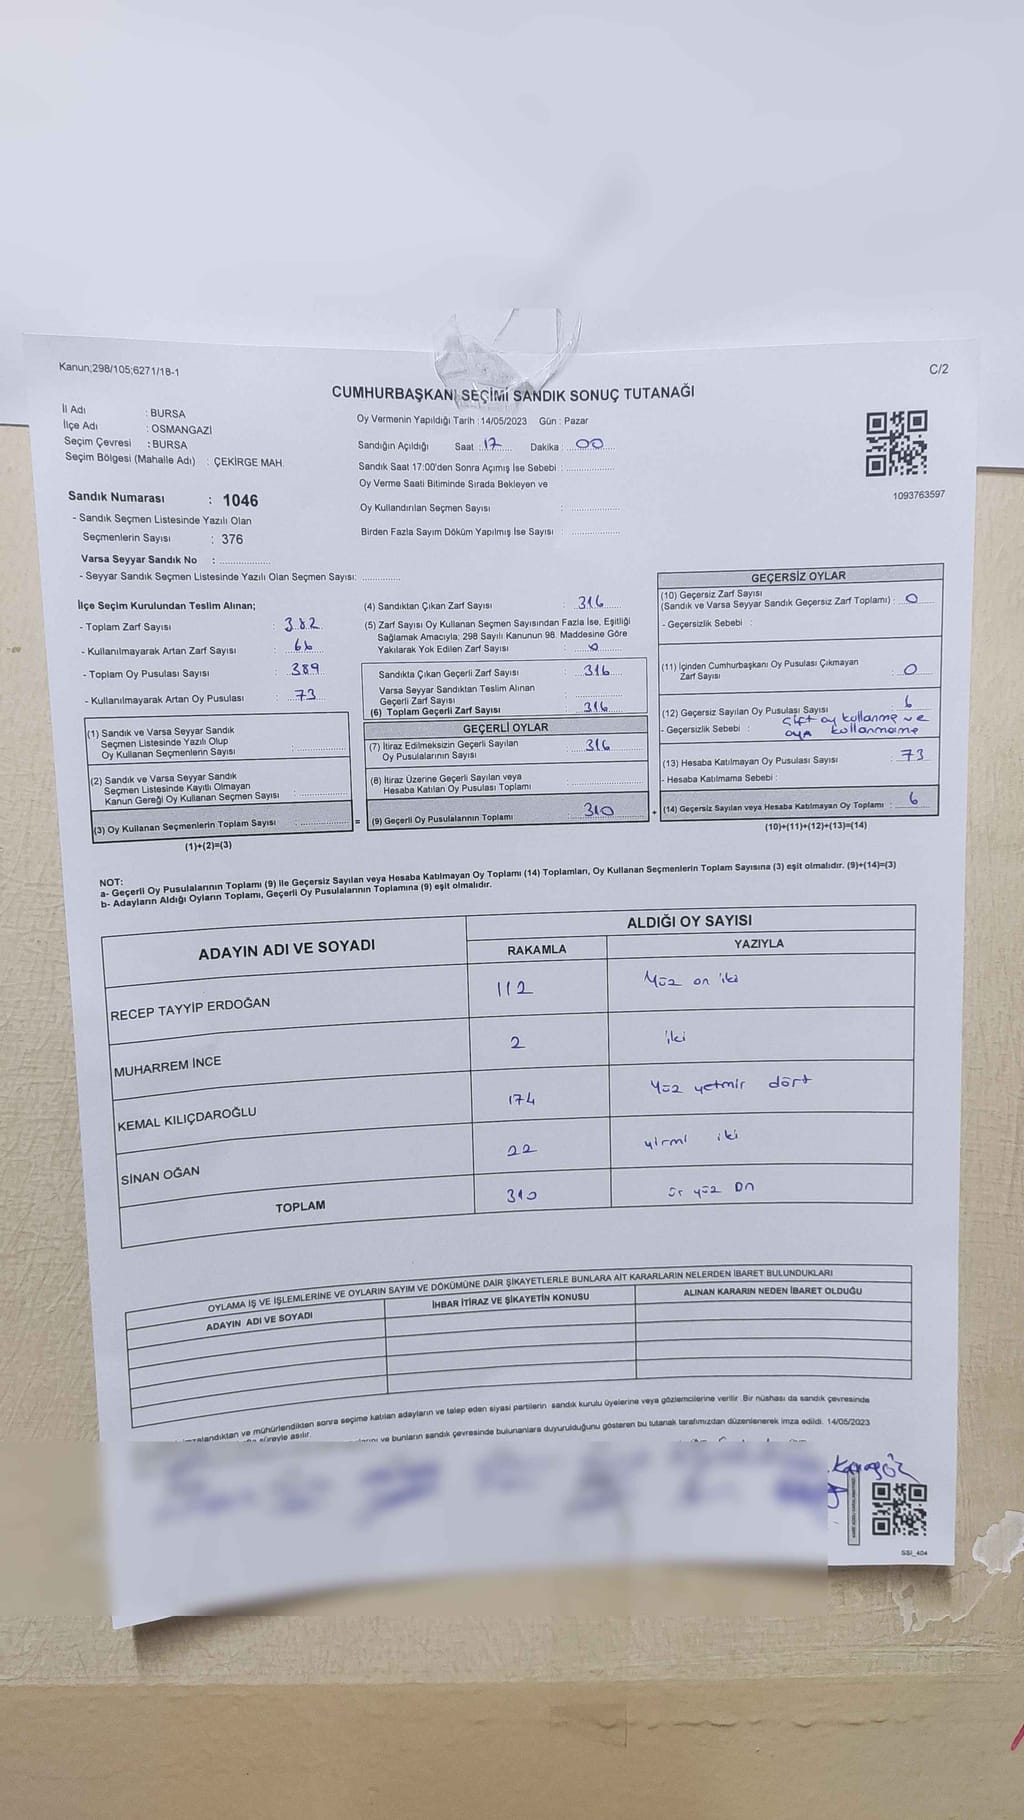 Kanun;298/105;6271/18-1
C/2
CUMHURBAŞKANI SEÇİMİ SANDIK SONUÇ TUTANAĞI
İl Adı : BURSA
İlçe Adı : OSMANGAZİ
Seçim Çevresi : BURSA
Seçim Bölgesi (Mahalle Adı) : ÇEKİRGE MAH.
Oy Vermenin Yapıldığı Tarih : 14/05/2023 Gün : Pazar
Sandığın Açıldığı Saat : 17 Dakika : 00
Sandık Saat 17:00'den Sonra Açımış İse Sebebi :
Oy Verme Saati Bitiminde Sırada Bekleyen ve
Oy Kullandırılan Seçmen Sayısı :
Birden Fazla Sayım Döküm Yapılmış İse Sayısı :
1093763597
Sandık Numarası : 1046
- Sandık Seçmen Listesinde Yazılı Olan
Seçmenlerin Sayısı : 376
Varsa Seyyar Sandık No :
- Seyyar Sandık Seçmen Listesinde Yazılı Olan Seçmen Sayısı:
İlçe Seçim Kurulundan Teslim Alınan;
- Toplam Zarf Sayısı : 382
- Kullanılmayarak Artan Zarf Sayısı : 66
- Toplam Oy Pusulası Sayısı : 389
- Kullanılmayarak Artan Oy Pusulası : 73
(1) Sandık ve Varsa Seyyar Sandık
Seçmen Listesinde Yazılı Olup
Oy Kullanan Seçmenlerin Sayısı :
(2) Sandık ve Varsa Seyyar Sandık
Seçmen Listesinde Kayıtlı Olmayan
Kanun Gereği Oy Kullanan Seçmen Sayısı :
(3) Oy Kullanan Seçmenlerin Toplam Sayısı :
(1)+(2)=(3)
(4) Sandıktan Çıkan Zarf Sayısı : 316
(5) Zarf Sayısı Oy Kullanan Seçmen Sayısından Fazla İse, Eşitliği
Sağlamak Amacıyla; 298 Sayılı Kanunun 98. Maddesine Göre
Yakılarak Yok Edilen Zarf Sayısı : 0
Sandıkta Çıkan Geçerli Zarf Sayısı : 316
Varsa Seyyar Sandıktan Teslim Alınan
Geçerli Zarf Sayısı :
(6) Toplam Geçerli Zarf Sayısı : 316
GEÇERLİ OYLAR
(7) İtiraz Edilmeksizin Geçerli Sayılan
Oy Pusulalarının Sayısı : 316
(8) İtiraz Üzerine Geçerli Sayılan veya
Hesaba Katılan Oy Pusulası Toplamı :
= (9) Geçerli Oy Pusulalarının Toplamı : 310 +
GEÇERSİZ OYLAR
(10) Geçersiz Zarf Sayısı
(Sandık ve Varsa Seyyar Sandık Geçersiz Zarf Toplamı) : 0
- Geçersizlik Sebebi :
(11) İçinden Cumhurbaşkanı Oy Pusulası Çıkmayan
Zarf Sayısı : 0
(12) Geçersiz Sayılan Oy Pusulası Sayısı : 6
- Geçersizlik Sebebi : çift oy kullanma ve
oya kullanmama
(13) Hesaba Katılmayan Oy Pusulası Sayısı : 73
- Hesaba Katılmama Sebebi :
(14) Geçersiz Sayılan veya Hesaba Katılmayan Oy Toplamı : 6
(10)+(11)+(12)+(13)=(14)
NOT:
a- Geçerli Oy Pusulalarının Toplamı (9) ile Geçersiz Sayılan veya Hesaba Katılmayan Oy Toplamı (14) Toplamları, Oy Kullanan Seçmenlerin Toplam Sayısına (3) eşit olmalıdır. (9)+(14)=(3)
b- Adayların Aldığı Oyların Toplamı, Geçerli Oy Pusulalarının Toplamına (9) eşit olmalıdır.
ADAYIN ADI VE SOYADI ALDIĞI OY SAYISI
RAKAMLA YAZIYLA
RECEP TAYYİP ERDOĞAN 112 Yüz on iki
MUHARREM İNCE 2 iki
KEMAL KILIÇDAROĞLU 174 Yüz yetmiş dört
SİNAN OĞAN 22 yirmi iki
TOPLAM 310 üç yüz on
OYLAMA İŞ VE İŞLEMLERİNE VE OYLARIN SAYIM VE DÖKÜMÜNE DAİR ŞİKAYETLERLE BUNLARA AİT KARARLARIN NELERDEN İBARET BULUNDUKLARI
ADAYIN ADI VE SOYADI İHBAR İTİRAZ VE ŞİKAYETİN KONUSU ALINAN KARARIN NEDEN İBARET OLDUĞU
ve mühürlendikten sonra seçime katılan adayların ve talep eden siyasi partilerin sandık kurulu üyelerine veya gözlemcilerine verilir. Bir nüshası da sandık çevresinde
süreyle asılır.
ve bunların sandık çevresinde bulunanlara duyurulduğunu gösteren bu tutanak tarafımızdan düzenlenerek imza edildi. 14/05/2023
Karagöz
SSI_404